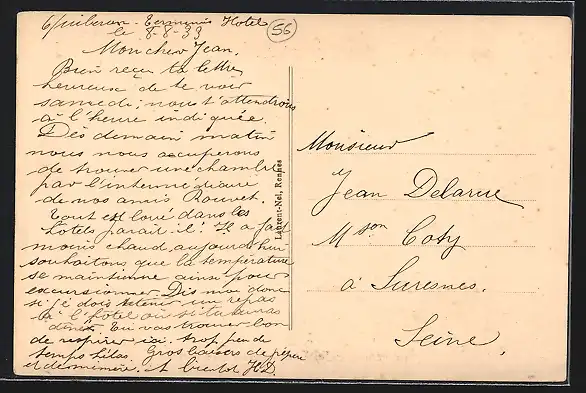 Quiberon - Terminus Hotel
le 8-8-33
56
Mon cher Jean,
Bien reçu ta lettre
heureuse de te voir
samedi; nous t'attendrons
à l'heure indiquée.
Dès demain matin
nous nous occuperons
de trouver une chambre
par l'intermédiaire
de nos amis
Tout est loué dans les
hotels parait-il! Il a fait
moins chaud aujourd'hui
souhaitons que la température
se maintienne ainsi pour
excursionner. Dis moi donc
si je dois retenir un repas
à l'hotel ou si tu auras
diné. Tu vas trouver bon
de respirer ici. trop peu de
temps hélas. Gros baisers de pépère
et de mémère. A bientot H.D.
Laurent-Nel, Rennes
Monsieur
Jean Delarue
Mson Coty
à Suresnes.
Seine.